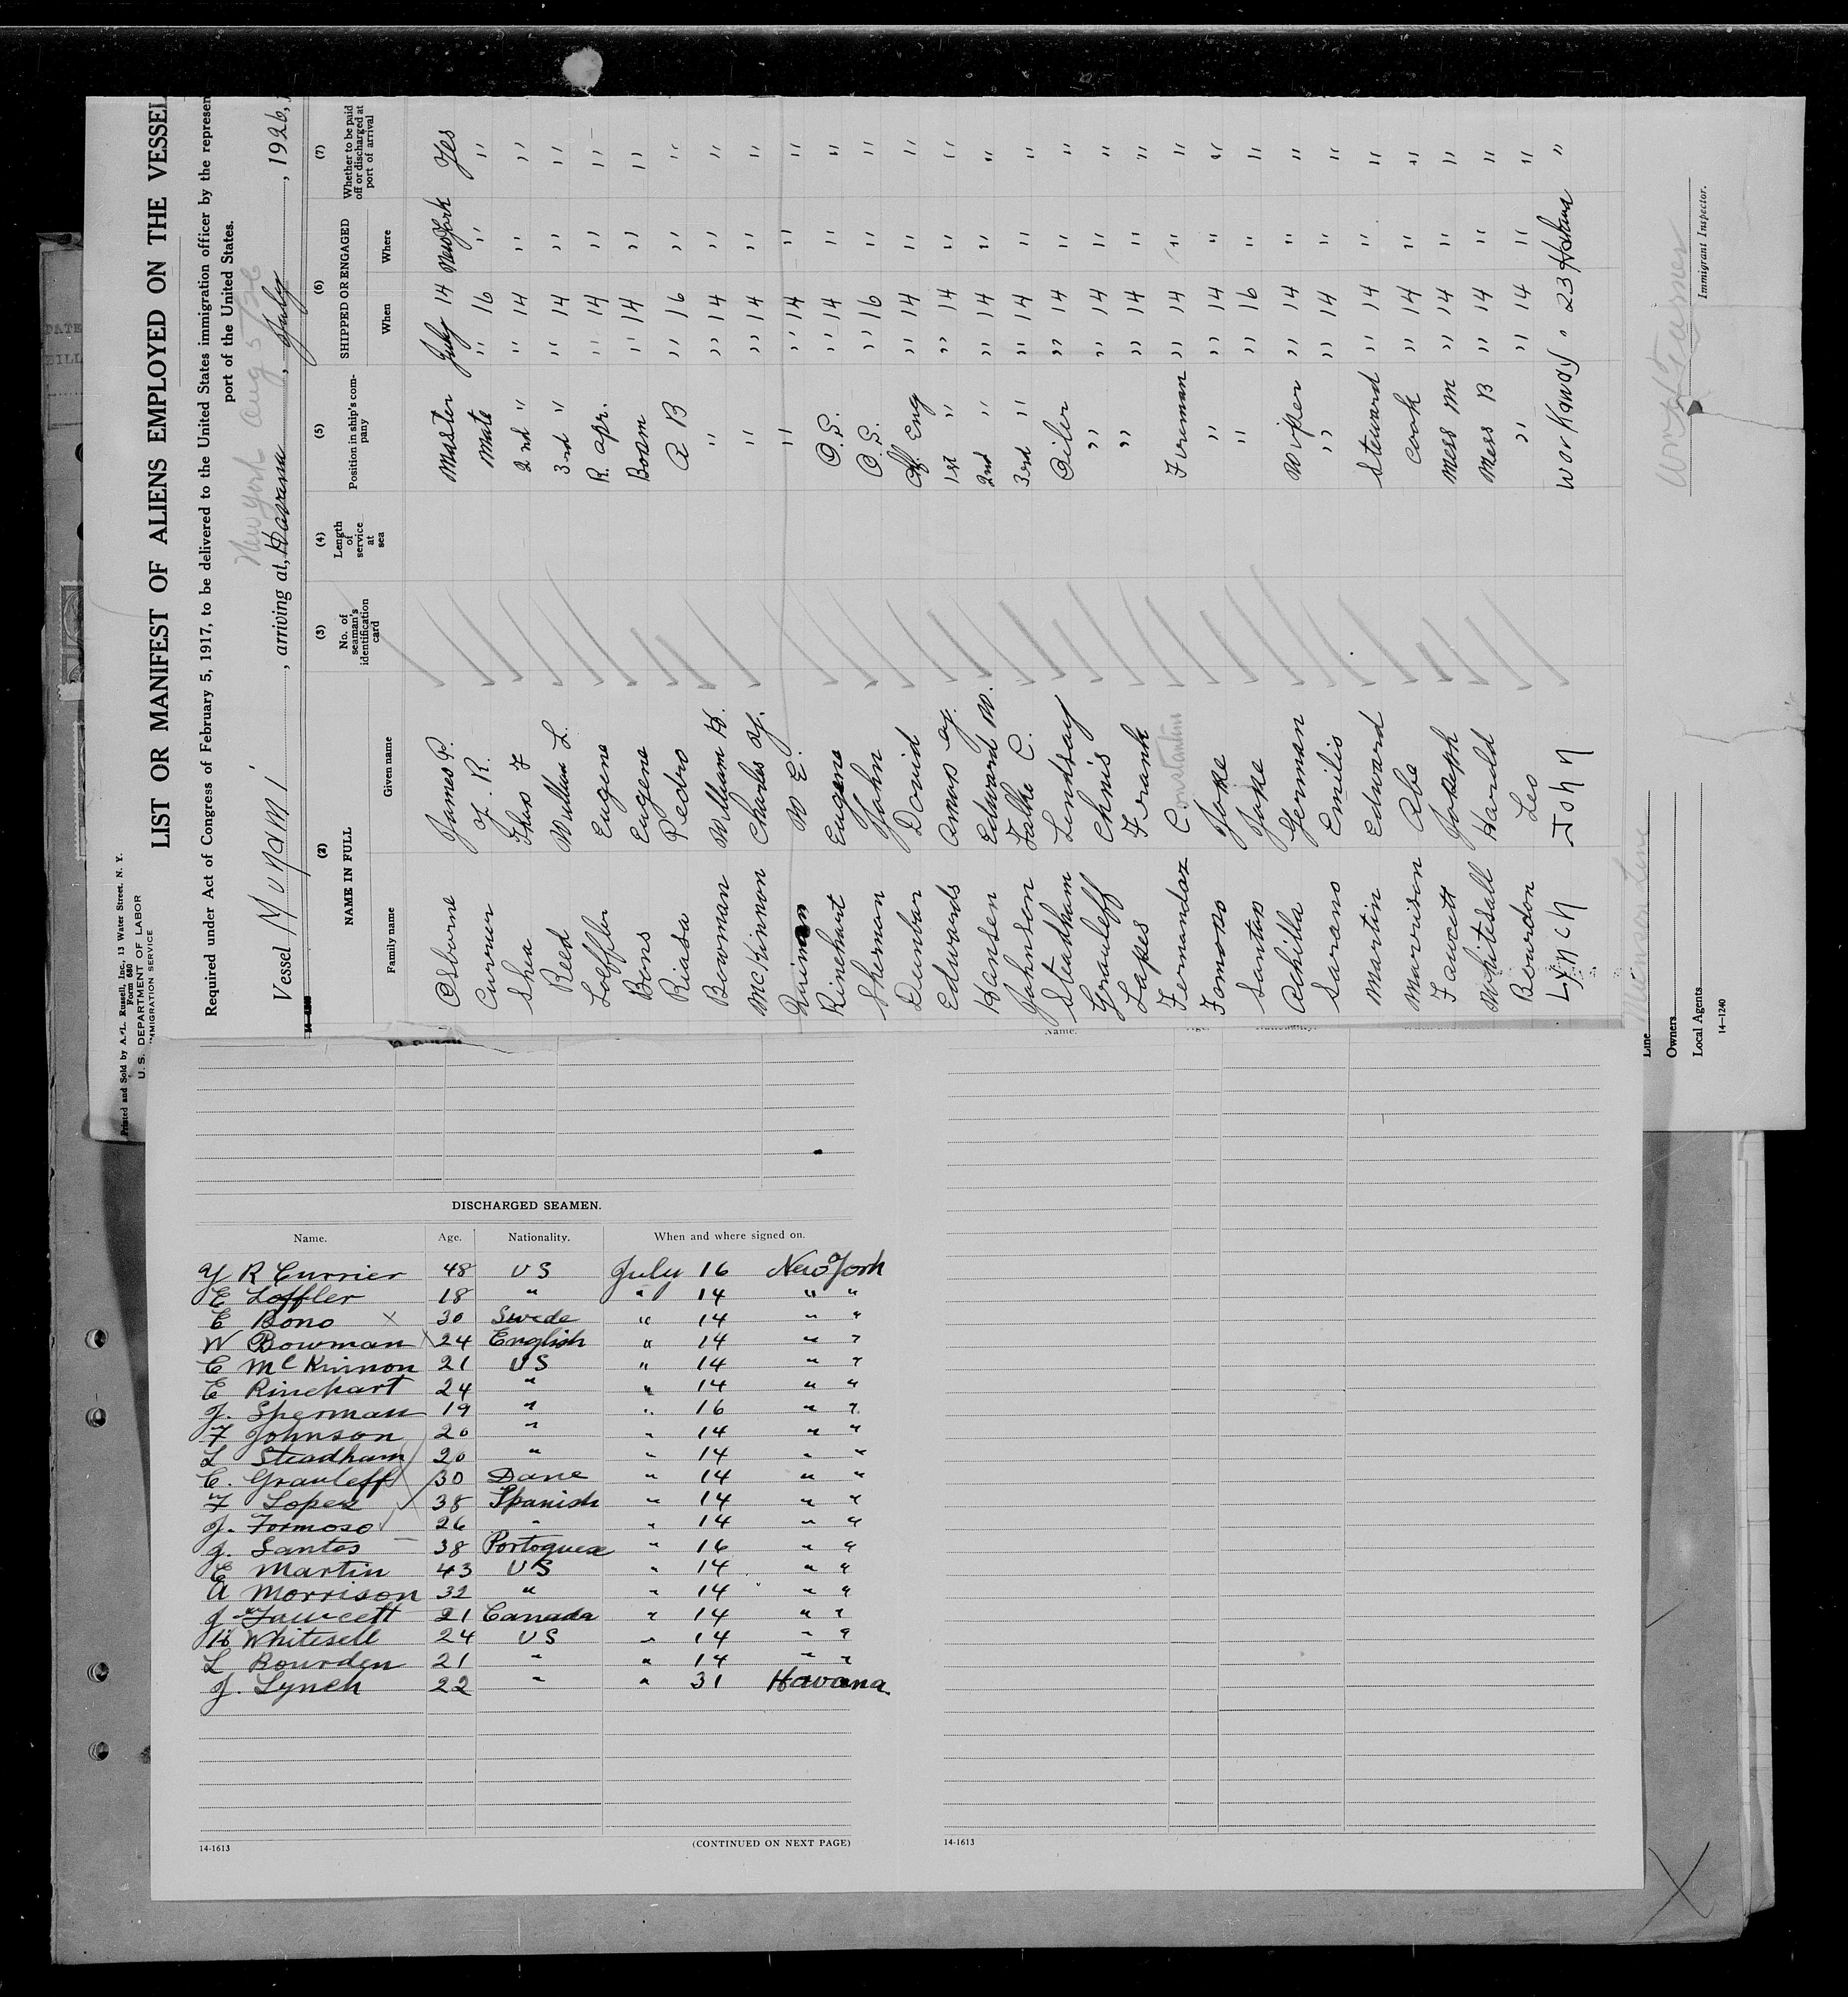 Printed and Sold by A. L. Russell, Inc., 13 Water Street, N. Y.
Form 680
U. S. DEPARTMENT OF LABOR
IMMIGRATION SERVICE
LIST OR MANIFEST OF ALIENS EMPLOYED ON THE VESSEL
Required under Act of Congress of February 5, 1917, to be delivered to the United States immigration officer by the represen
port of the United States.
New York Aug 5
Vessel Munami, arriving at, Havana, July, 1926,
(2) (3) (4) (5) (6) (7)
NAME IN FULL No. of seaman's identification card Length of service at sea Position in ship's company SHIPPED OR ENGAGED Whether to be paid off or discharged at port of arrival
Family name Given name When Where
Osborne James P. Master July 14 New York Yes
Currier Y. R. Mate " 16 " "
Shea Thos F 2nd " " 14 " "
Reed William L. 3rd " " 14 " "
Loffler Eugene R. Opr. " 14 " "
Bons Eugene Bosm " 14 " "
Riasu Pedro A B " 16 " "
Bowman William H. " " 14 " "
McKinnon Charles Y. " " 14 " "
W E. " " 14 " "
Rinehart Eugene O.S. " 14 " "
Sherman John O.S. " 16 " "
Dunbar David Ch. Eng " 14 " "
Edwards Amos J. 1st " " 14 " "
Hansen Edward W. 2nd " " 14 " "
Johnson Falke C. 3rd " " 14 " "
Steadham Lindsay Oiler " 14 " "
Grauleff Chris " " 14 " "
Lopes Frank " " 14 " "
Fernandez Constantin Fireman " 14 " "
Fomoso Jose " " 14 " "
Santos Jose " " 16 " "
Achilla German Wiper " 14 " "
Sarano Emilio " " 14 " "
Martin Edward Steward " 14 " "
Morrison Abe Cook " 14 " "
Faucett Joseph Mess M " 14 " "
Whitesall Harold Mess B " 14 " "
Bourdon Leo " " 14 " "
Lynch John Workaway " 23 Habana "
Line Munson Line
Owners
Local Agents
14-1240
Immigrant Inspector.
DISCHARGED SEAMEN.
Name. Age. Nationality. When and where signed on.
Y R Currier 48 US July 16 New York
E Loffler 18 " " 14 " "
E Bono x 30 Swede " 14 " "
W Bowman x 24 English " 14 " "
C McKinnon 21 US " 14 " "
E Rinehart 24 " " 14 " "
J. Sherman 19 " " 16 " "
F Johnson 20 " " 14 " "
L Steadham 20 " " 14 " "
C. Grauleff 30 Dane " 14 " "
F Lopez 38 Spanish " 14 " "
J. Formoso 26 " " 14 " "
J. Santos 38 Portoguese " 16 " "
E Martin 43 US " 14 " "
A Morrison 32 " " 14 " "
J Fawcett 21 Canada " 14 " "
H Whitesell 24 US " 14 " "
L Bourden 21 " " 14 " "
J. Lynch 22 " " 31 Havana
14-1613
(CONTINUED ON NEXT PAGE)
14-1613